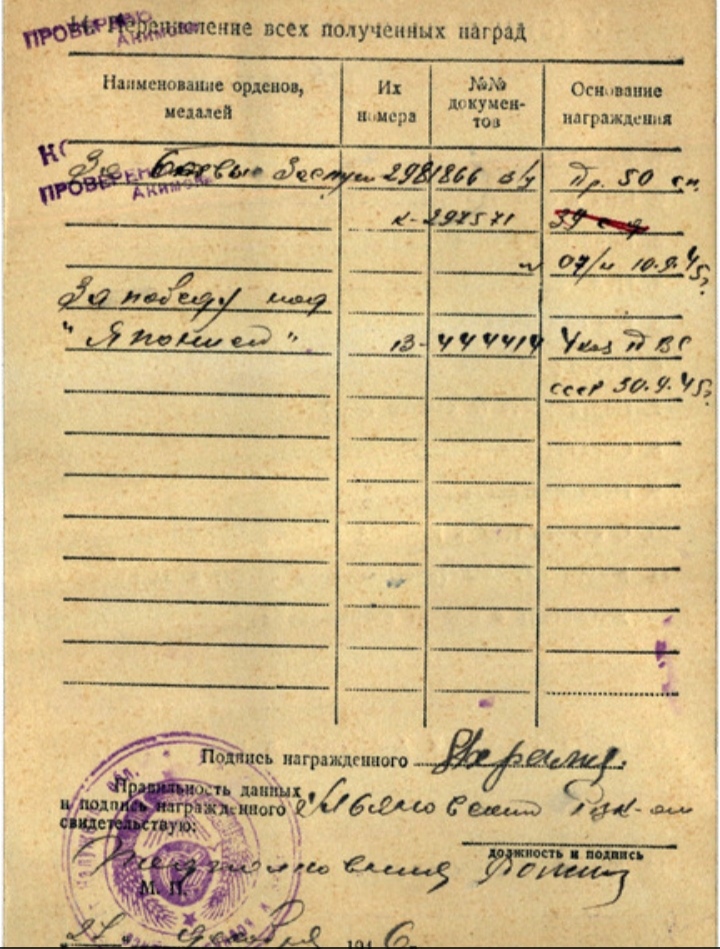 ПРОВЕРЕНО
14. Перечисление всех полученных наград
Акимов
Наименование орденов, медалей
Их номера
№№ документов
Основание награждения
ПРОВЕРЕНО
Акимов
За боевые Заслуги 2981866 б/у Пр. 50 сп.
к-297571 39
07/н 10.9.45г.
За победу над
"Японией" 13- 444414 Указ П ВС
СССР 30.9.45г.
Подпись награжденного
Правильность данных
и подпись награжденного
свидетельствую:
должность и подпись
М. П.
декабря 1946